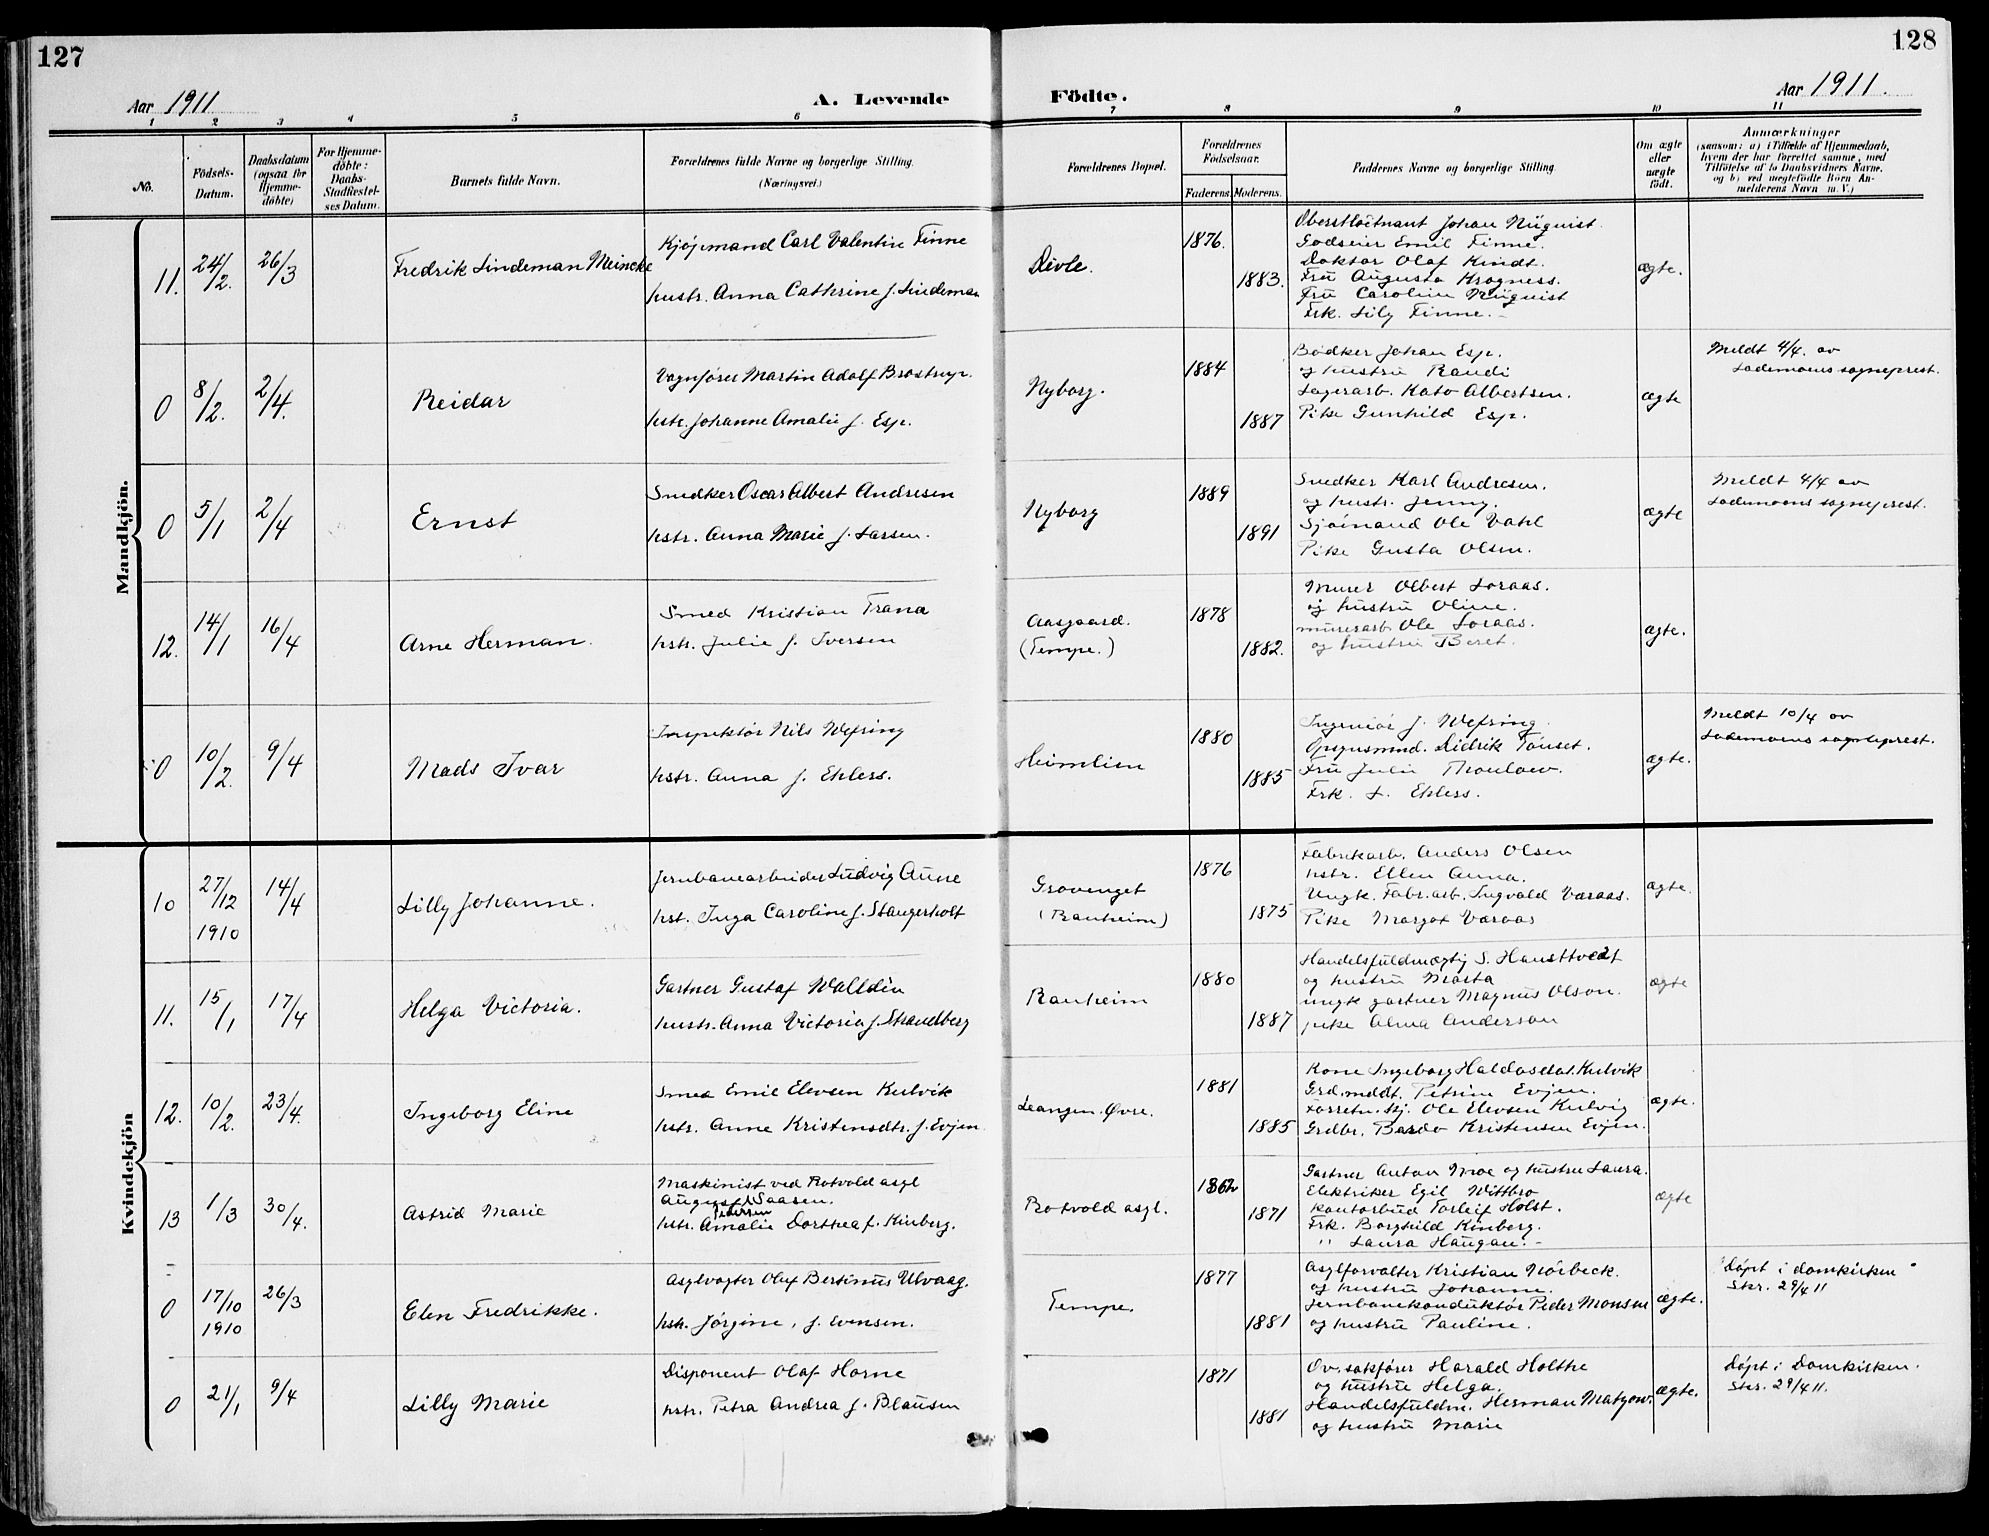 127
128
Aar 1911
A. Levende Födte.
Aar 1911.
1 2 3 4 5 6 7 8 9 10 11
No.
Födsels-Datum.
Daabsdatum (ogsaa for Hjemme-döbte)
For Hjemme-döbte: Daabs-Stadfæstel-ses Datum.
Barnets fulde Navn.
Forældrenes fulde Navne og borgerlige Stilling.
(Næringsvei.)
Forældrenes Bopæl.
Forældrenes Födselsaar.
Faderens. Moderens.
Faddernes Navne og borgerlige Stilling.
Om ægte eller uægte födt.
Anmærkninger
(saasom: a) i Tilfælde af Hjemmedaab,
hvem der har forrettet samme, med
Tilföielse af to Daabsvidners Navne,
og b) ved uægtefödte Börn An-
melderens Navn m. V.)
Mandkjön.
11. 24/2. 26/3
Fredrik Lindeman Meincke
Kjøpmand Carl Valentin Finne
hustr. Anna Cathrine f. Lindeman
Devle.
1876.
1883.
Oberstløitnant Johan Nüquist.
Godseier Emil Finne.
Doktor Olaf Kindt.
Fru Augusta Krogness.
Fru Caroline Nüquist
Frk. Lily Finne.
ægte.
0 8/2. 2/4.
Reidar
Vognfører Martin Adolf Brostrup.
hstr. Johanne Amalie f. Esp.
Nyborg.
1884
1887
Bødker Johan Esp.
og hustru Randi
Lagerarb. Kato Albertsen.
Pike Gunhild Esp.
ægte
Meldt 4/4. av
Lademoens sogneprest.
0 5/1 2/4
Ernst
Snedker Oscar Albert Andresen
hstr. Anna Marie f. Larsen.
Nyborg
1889
1891
Snedker Karl Andresen.
og hustr. Jenny.
Sjømand Ole Vahl
Pike Gusta Olsen.
ægte
Meldt 4/4 av
Lademoens sogneprest.
12. 14/1 16/4
Arne Herman.
Smed Kristian Trana
hstr. Julie f. Iversen
Aasgaard.
(Tempe.)
1878
1882.
Murer Olbert Loraas.
og hustru Oline.
murerarb. Ole Loraas.
og hustru Beret.
ægte.
0 10/2. 9/4
Mads Ivar
Inspektør Nils Wefring
hstr. Anna f. Ehlers.
Heimlien
1880
1885
Ingeniør J. Wefring.
Opsynsmnd. Didrik Tønset.
Fru Julie Thoulow.
Frk. L. Ehlers.
ægte.
Meldt 10/4 av
Lademoens sogneprest.
Kvindekjön
10 27/12 1910 14/4
Lilly Johanne.
Jernbanearbeider Ludvig Aune
hst. Inga Caroline f. Stangerholt
Grovenget
(Ranheim)
1876
1875
Fabrikarb. Anders Olsen
hstr. Ellen Anna.
Ungk. Fabr.arb. Ingvald Væraas.
Pike Margot Væraas
ægte.
11. 15/1 17/4
Helga Victoria.
Gartner Gustaf Walldén
hustr. Anna Victoria f. Strandberg
Ranheim
1880
1887
Handelsfuldmægtig S. Hansttvedt
og hustru Marta
ungk gartner Magnus Olson.
pike Alma Anderson
ægte
12. 10/2. 23/4.
Ingeborg Eline
Smed Emil Elevsen Kulvik
hstr. Anne Kristensdtr. f. Evjen
Leangen. Øvre.
1881
1885
Kone Ingeborg Haldosdat. Kulvik
Grd.mddt. Petrine Evjen.
Forretn.bj. Ole Elevsen Kulvig
Grdbr. Bardo Kristensen Evjen.
ægte.
13 1/3 30/4.
Astrid Marie
Maskinist ved Rotvold asyl
August Waasen.
Pedersen
hstr. Amalie Dorthea f. Kinberg.
Rotvold asyl.
1862
1871
Gartner Anton Moe og hustru Laura.
Elektriker Egil Wittbro
kontorbud Torleif Holst.
Frk. Borghild Kinberg.
" Laura Haugan.
ægte
0 17/10 1910 26/3
Elen Fredrikke.
Asylvogter Oluf Bertinus Ulvaag.
hstr. Jørgine, f. Evensen.
Tempe.
1877
1881
Asylforvalter Kristian Nørbeck.
og hustru Johanne.
Jernbanekonduktør Peder Monsen
og hustru Pauline.
ægte.
Døpt i Domkirken
Skr. 29/4 11
0 21/1 9/4
Lilly Marie
Disponent Olaf Horne
hstr. Petra Andrea f. Blausen
1871
1881
Ov. sakfører Harald Holthe
og hustru Helga.
Handelsfuldm. Herman Matzow.
og hustru Marie
ægte.
Døpt i Domkirken.
Skr. 29/4 11.